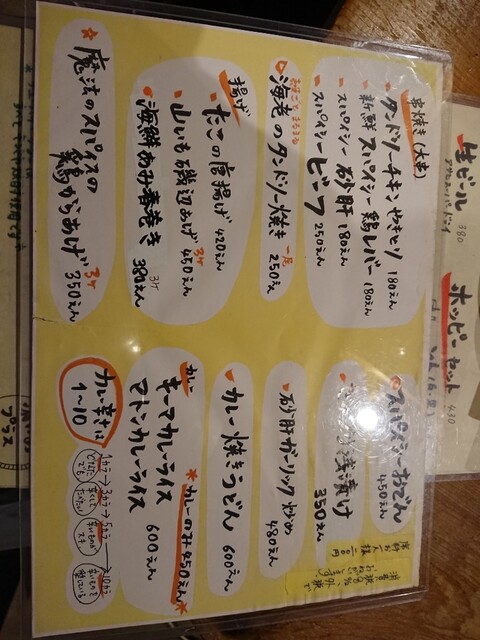 串焼き(大串)
・タンドリーチキンやきとり 180えん
・新鮮スパイシー鶏レバー 180えん
・スパイシー砂肝 180えん
・スパイシービーフ 250えん
海老のタンドリー焼き 一尾 250えん
揚げ
・たこの唐揚げ 420えん
・山いも磯辺あげ 3ケ 450えん
海鮮あみ春巻き 3ケ 380えん
☆魔法のスパイスの
鶏からあげ 3ケ 350えん
スパイシーおでん 450えん
浅漬け 350えん
・砂肝ガーリック炒め 480えん
・カレー焼きうどん 600えん
カレー
キーマカレーライス
マトンカレーライス 600えん
*カレーのみ450えん*
カレー辛さは
1〜10
消費税8%外税で
おねがいします。
生ビール
アサヒスーパードライ 380
ホッピーセット 430